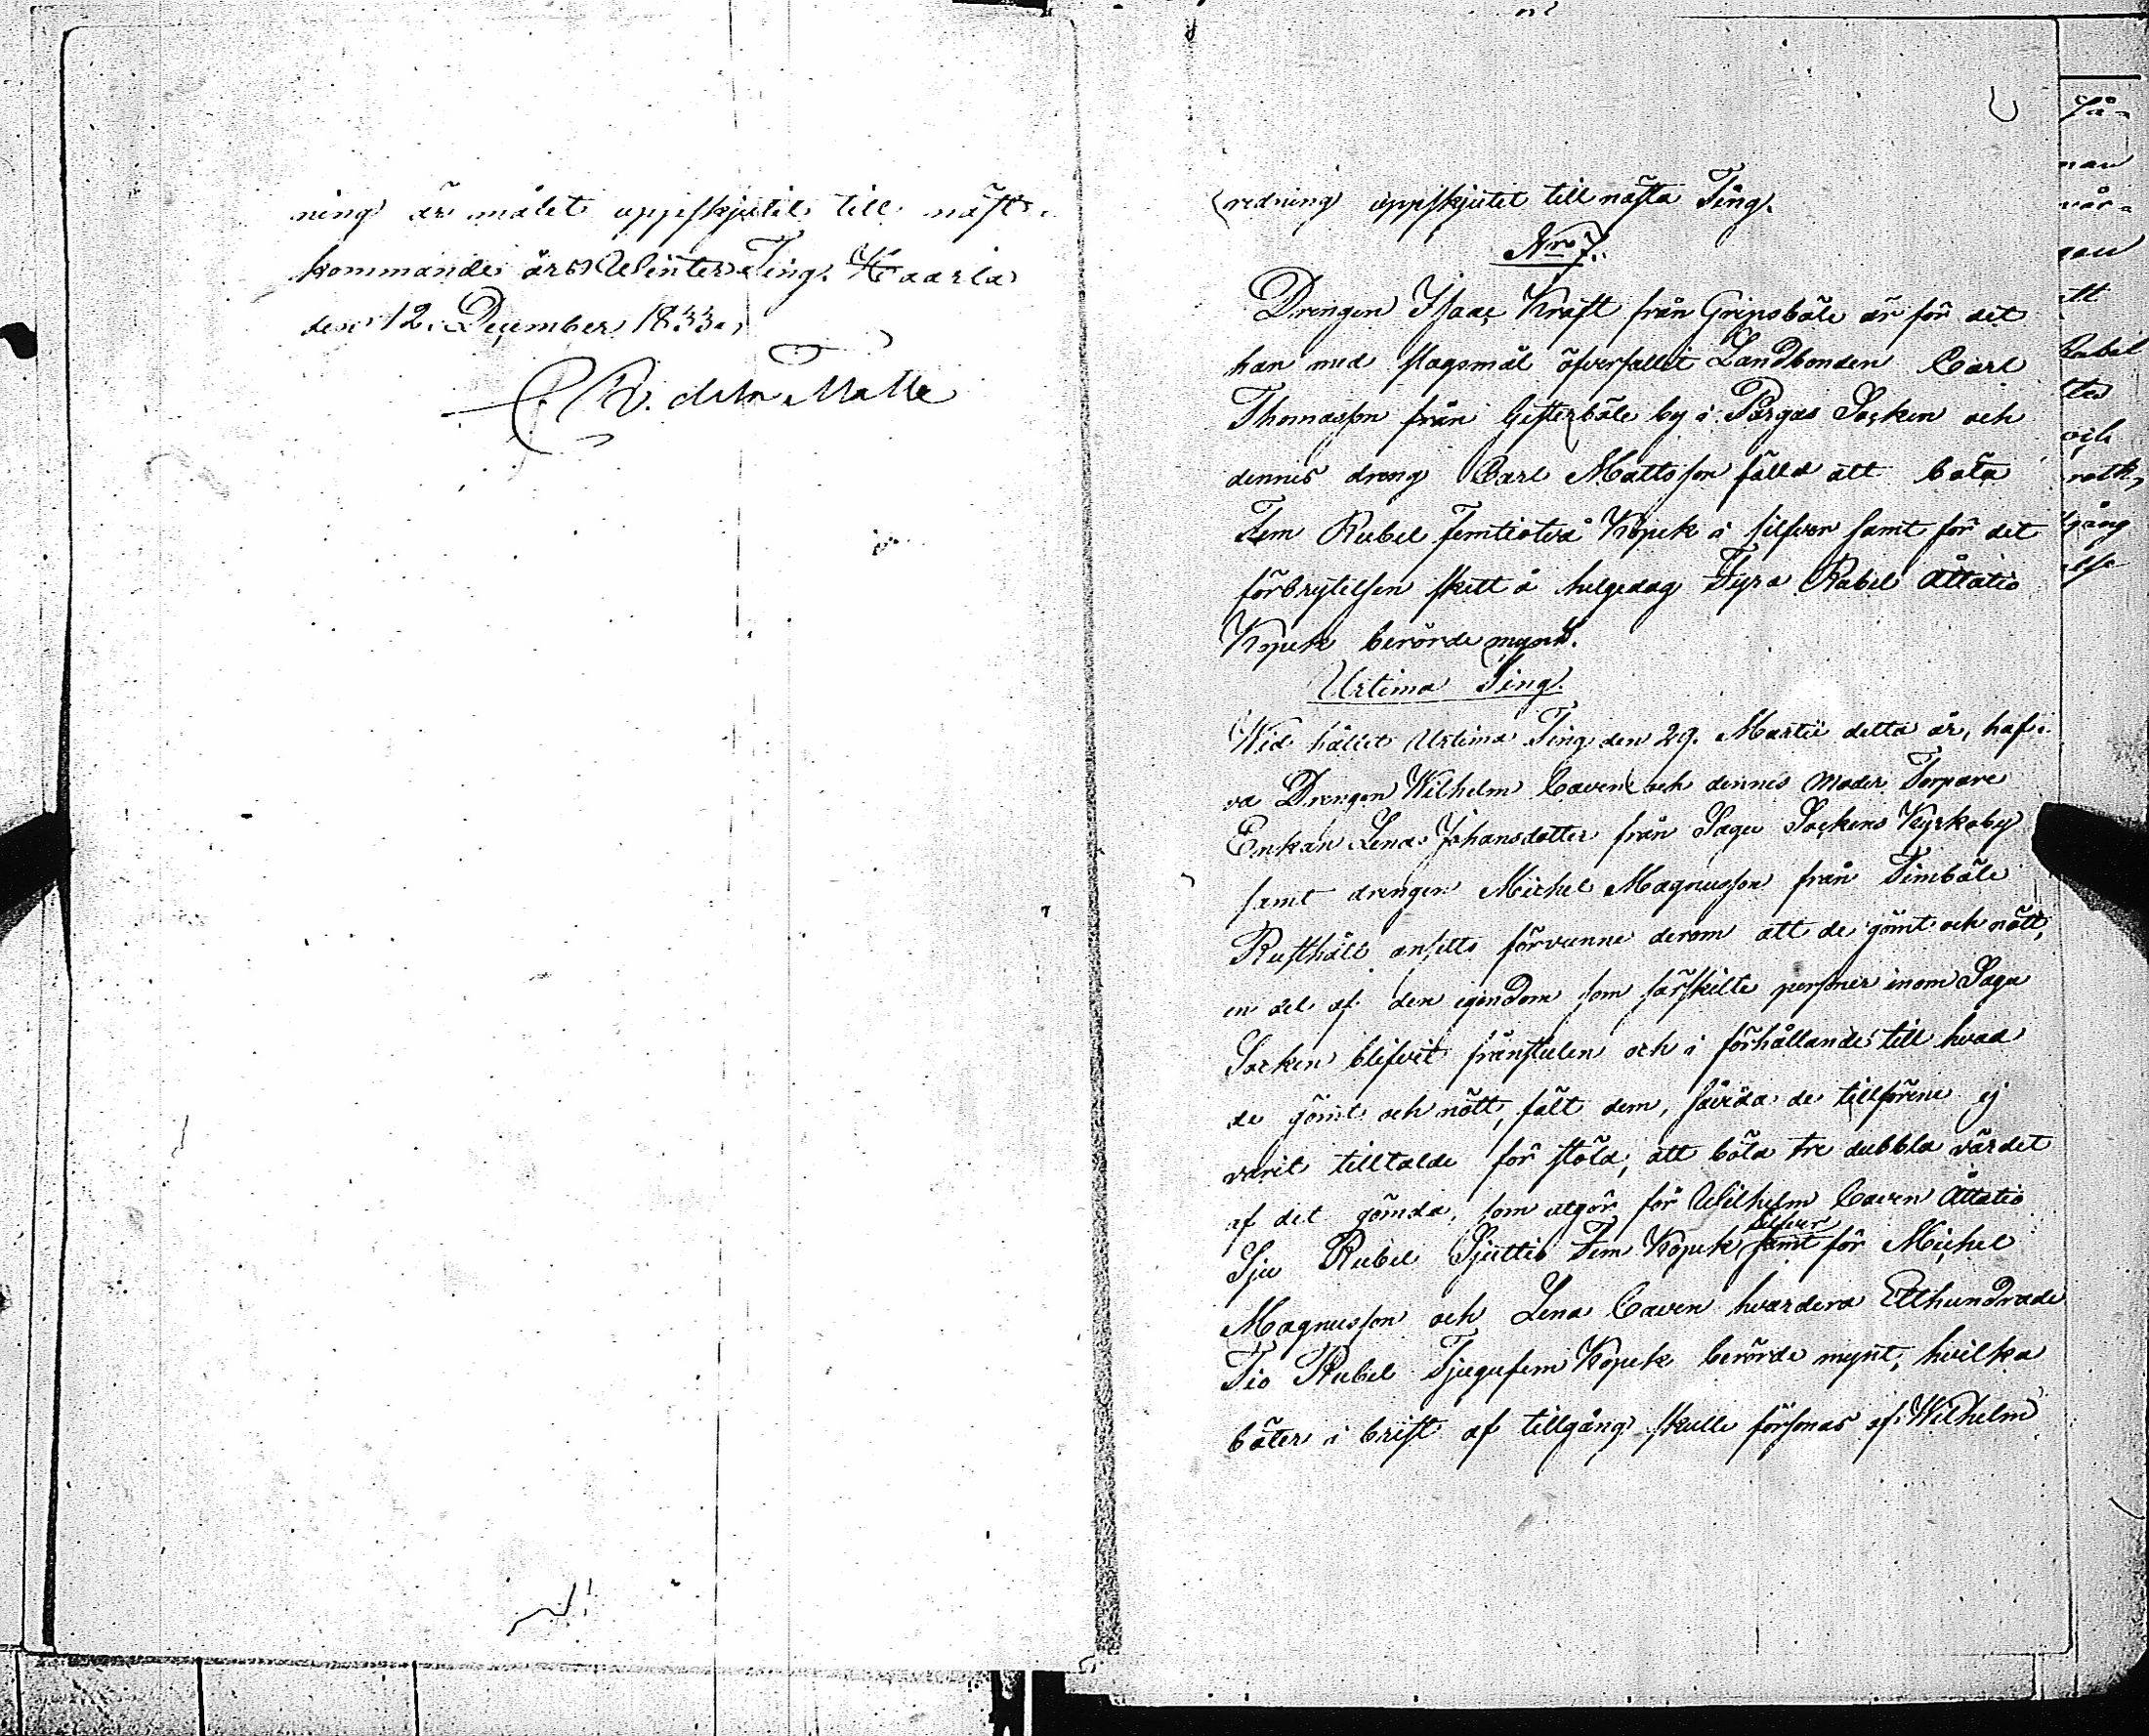 ning är målet uppskjutit till näst-
kommande års Winter Ting. Kaarla
den 12. December 1833.
redning uppskjutet till nästa Ting.
Nro 7.
Drengen Isaac Kraft från Gripsböle är för det
han med slagsmål öfverfallit Landbonden Carl
Thomasson från Gifterböle by i Pargas Socken och
dennes dreng Carl Mattsson fälld att böta
Fem Rubel femtiotvå Kopek i silfver samt för det
förbrytelsen skett å helgedag Fyra Rubel Åttatio
Kopek berörde mynt.
Urtima Ting.
Wid hållet Urtima Ting den 29. Martii detta år, haf-
va Drengen Wilhelm Caven och dennes moder Torpare
Enkan Lena Johansdotter från Sagu Sockens Kyrkoby
samt drengen Michel Magnusson från Timböle
Rusthåll ansetts förvunne derom att de gömt och nött,
en del af den egendom som särskilte personer inom Sagu
Socken blifvit frånstulen och i förhållande till hvad
de gömt och nött, fält dem, såvida de tillförene ej
varit tilltalde för stöld, att böta tre dubbla värdet
af det gömda, som utgör för Wilhelm Caven Åttatio
silfver
Sju Rubel Sjuttio Fem Kopek samt för Michel
Magnusson och Lena Caven hvardera Etthundrade
Tio Rubel Tjugufem Kopek berörde mynt, hvilka
böter i brist af tillgång skulle försonas af Wilhelm
få-
man
när-
gen
ett
Rubel
gång
else